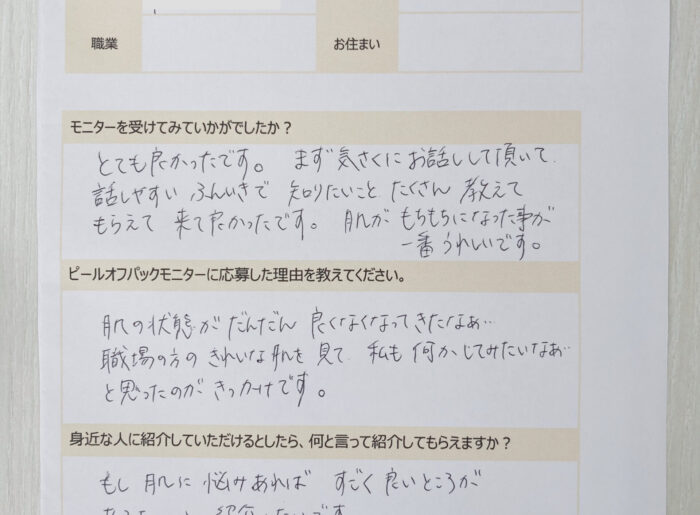 職業
お住まい
モニターを受けてみていかがでしたか？
とても良かったです。 まず気さくにお話しして頂いて、
話しやすい ふんいきで 知りたいこと たくさん 教えて
もらえて 来て良かったです。 肌が もちもちになった事が
一番 うれしいです。
ピールオフパックモニターに応募した理由を教えてください。
肌の状態が だんだん 良くなくなってきたなぁ…
職場の方の きれいな肌を 見て、私も 何かしてみたいなぁ…
と思ったのが きっかけです。
身近な人に紹介していただけるとしたら、何と言って紹介してもらえますか？
もし 肌に 悩みあれば すごく 良いところが